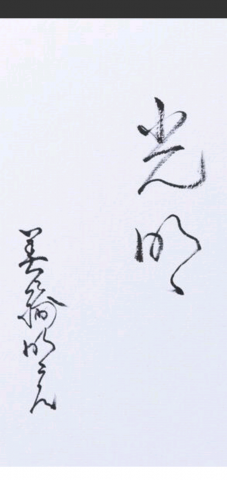 光明
美輪明宏